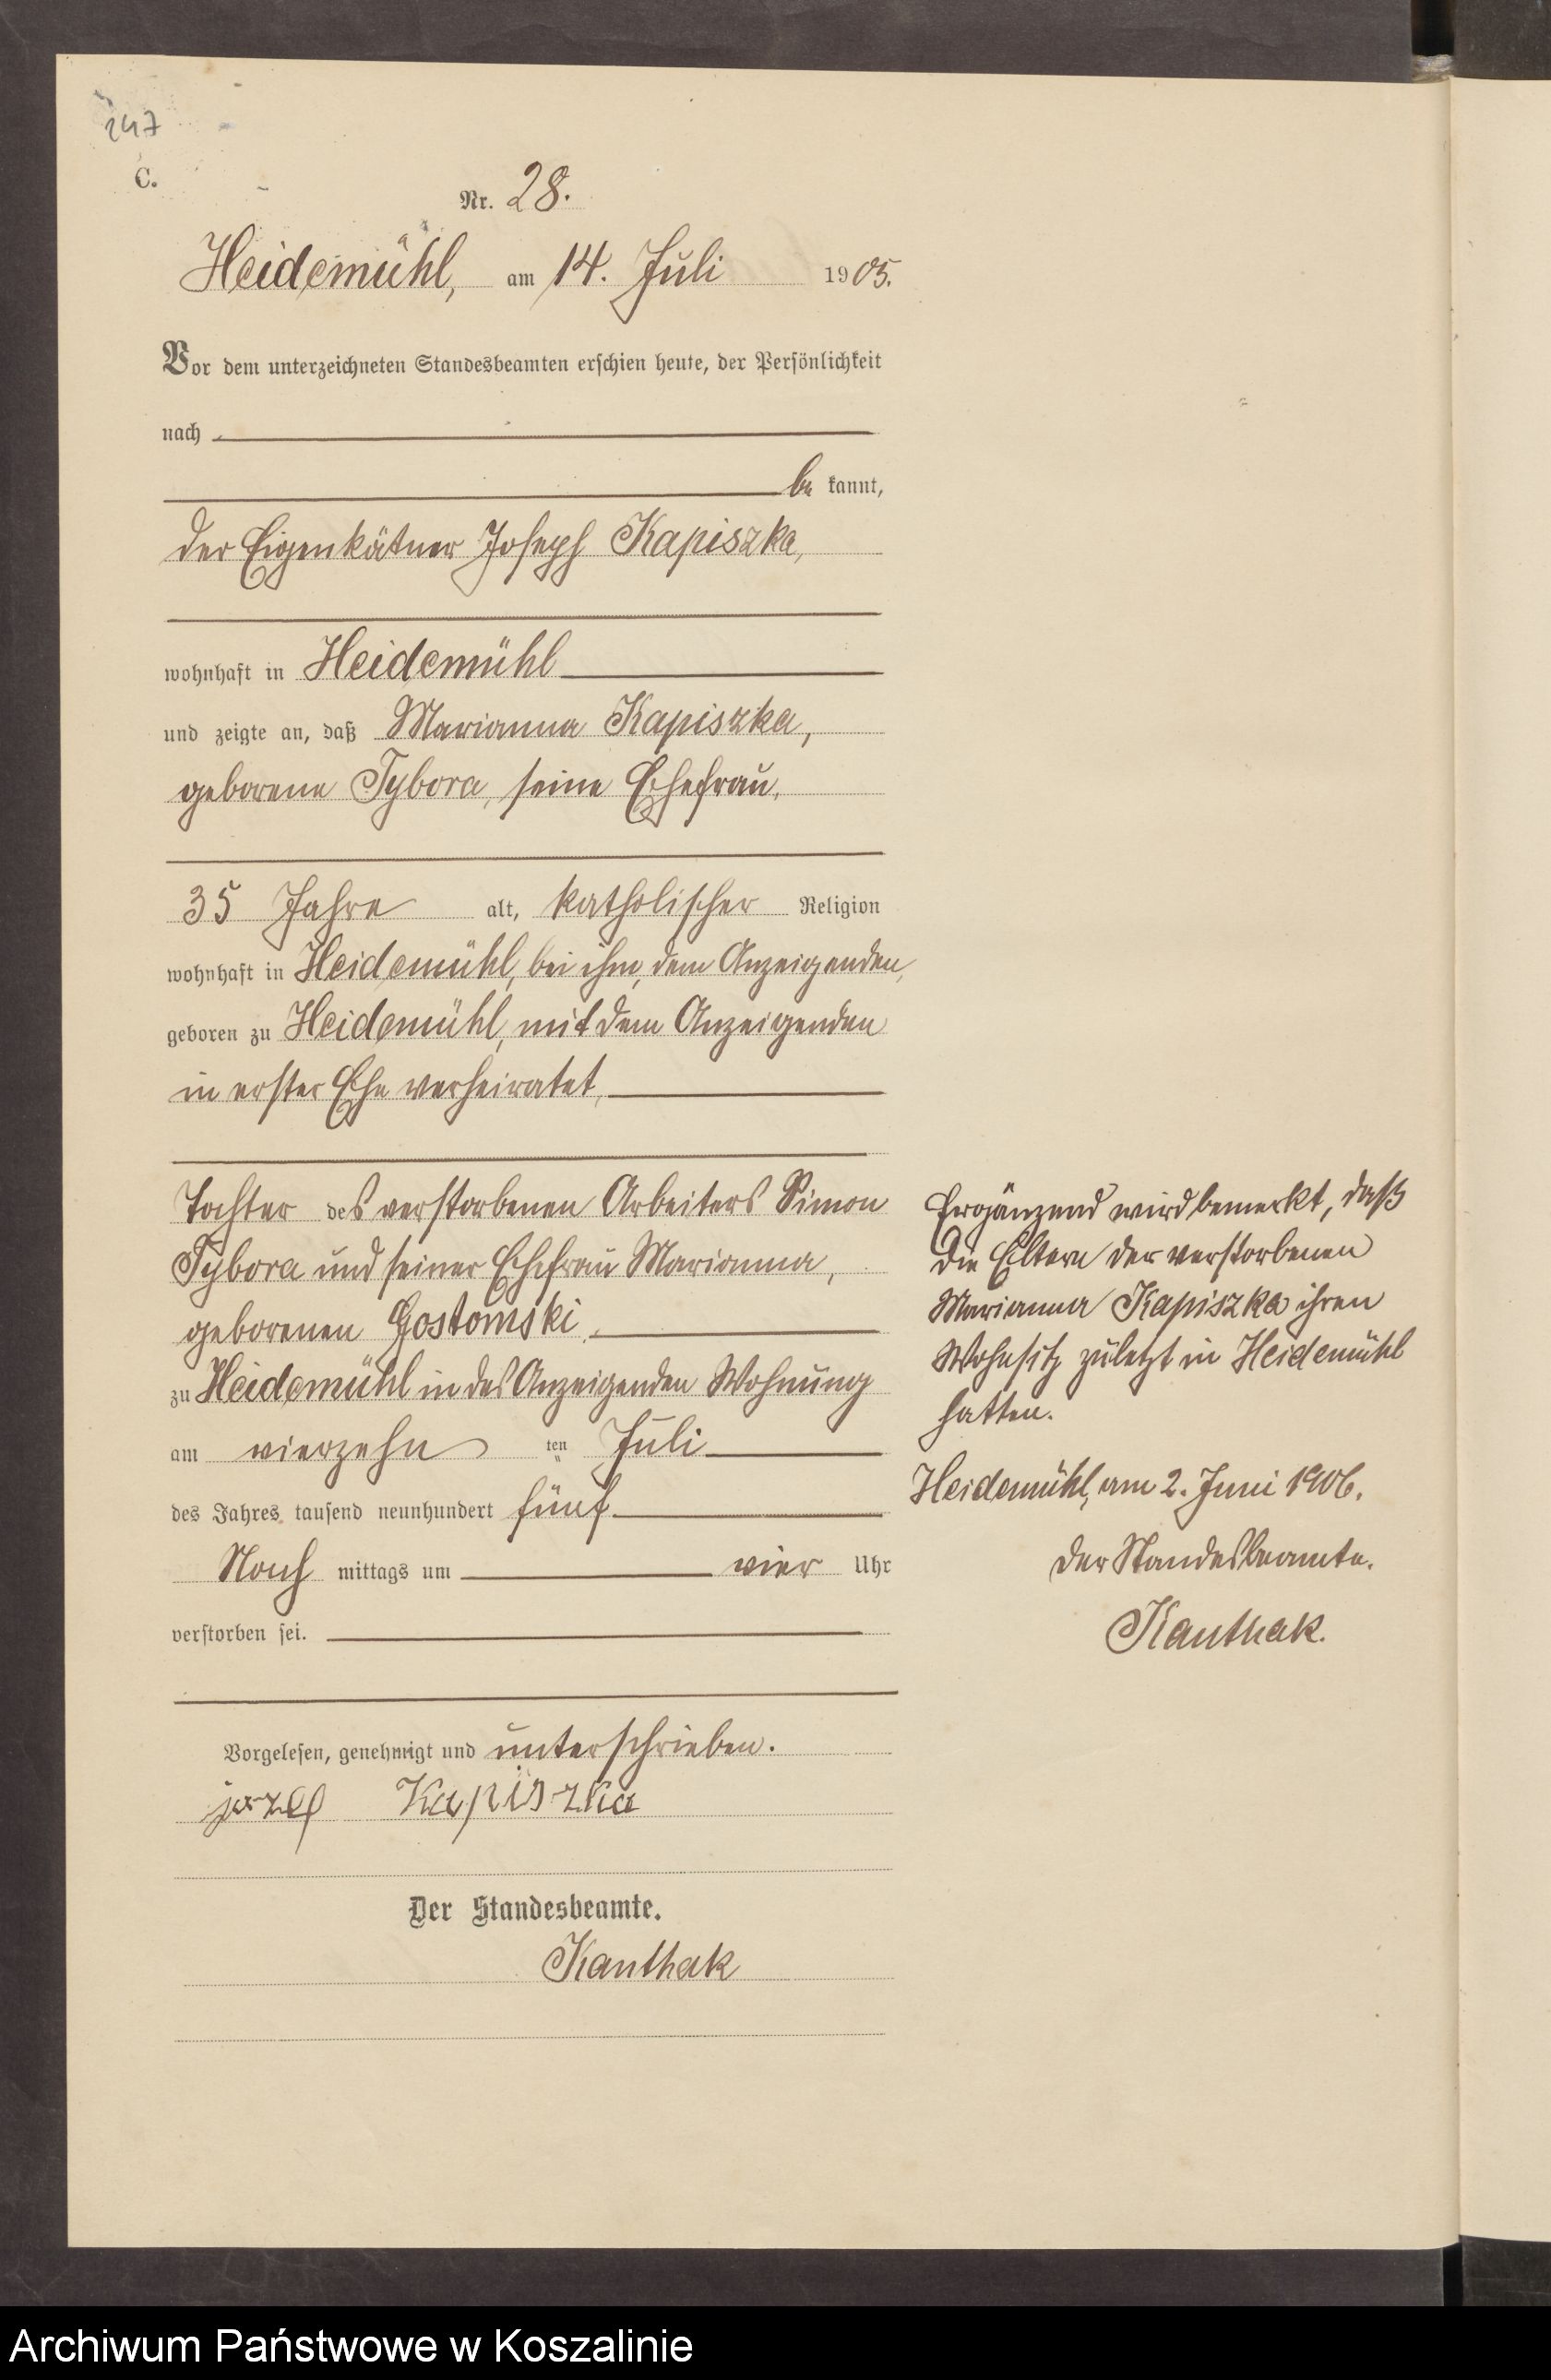 247
C.
Nr. 28.
Heidemühl, am 14. Juli 1905.
Vor dem unterzeichneten Standesbeamten erschien heute, der Persönlichkeit
nach
be kannt,
der Eigenkätner Joseph Kapiszka,
wohnhaft in Heidemühl
und zeigte an, daß Marianna Kapiszka,
geborene Tybora, seine Ehefrau,
35 Jahre alt, katholischer Religion
wohnhaft in Heidemühl, bei ihm, dem Anzeigenden,
geboren zu Heidemühl, mit dem Anzeigenden
in erster Ehe verheiratet,
Tochter des verstorbenen Arbeiters Simon
Tybora und seiner Ehefrau Marianna,
geborenen Gostomski,
zu Heidemühl in des Anzeigenden Wohnung
am vierzehn ten Juli
des Jahres tausend neunhundert fünf
Nach mittags um vier Uhr
verstorben sei.
Vorgelesen, genehmigt und unterschrieben.
jozef Kapiszka
Der Standesbeamte.
Kanthak
Ergänzend wird bemerkt, daß
die Eltern der verstorbenen
Marianna Kapiszka ihren
Wohnsitz zuletzt in Heidemühl
hatten.
Heidemühl, am 2. Juni 1906.
Der Standesbeamte.
Kanthak.
Archiwum Państwowe w Koszalinie